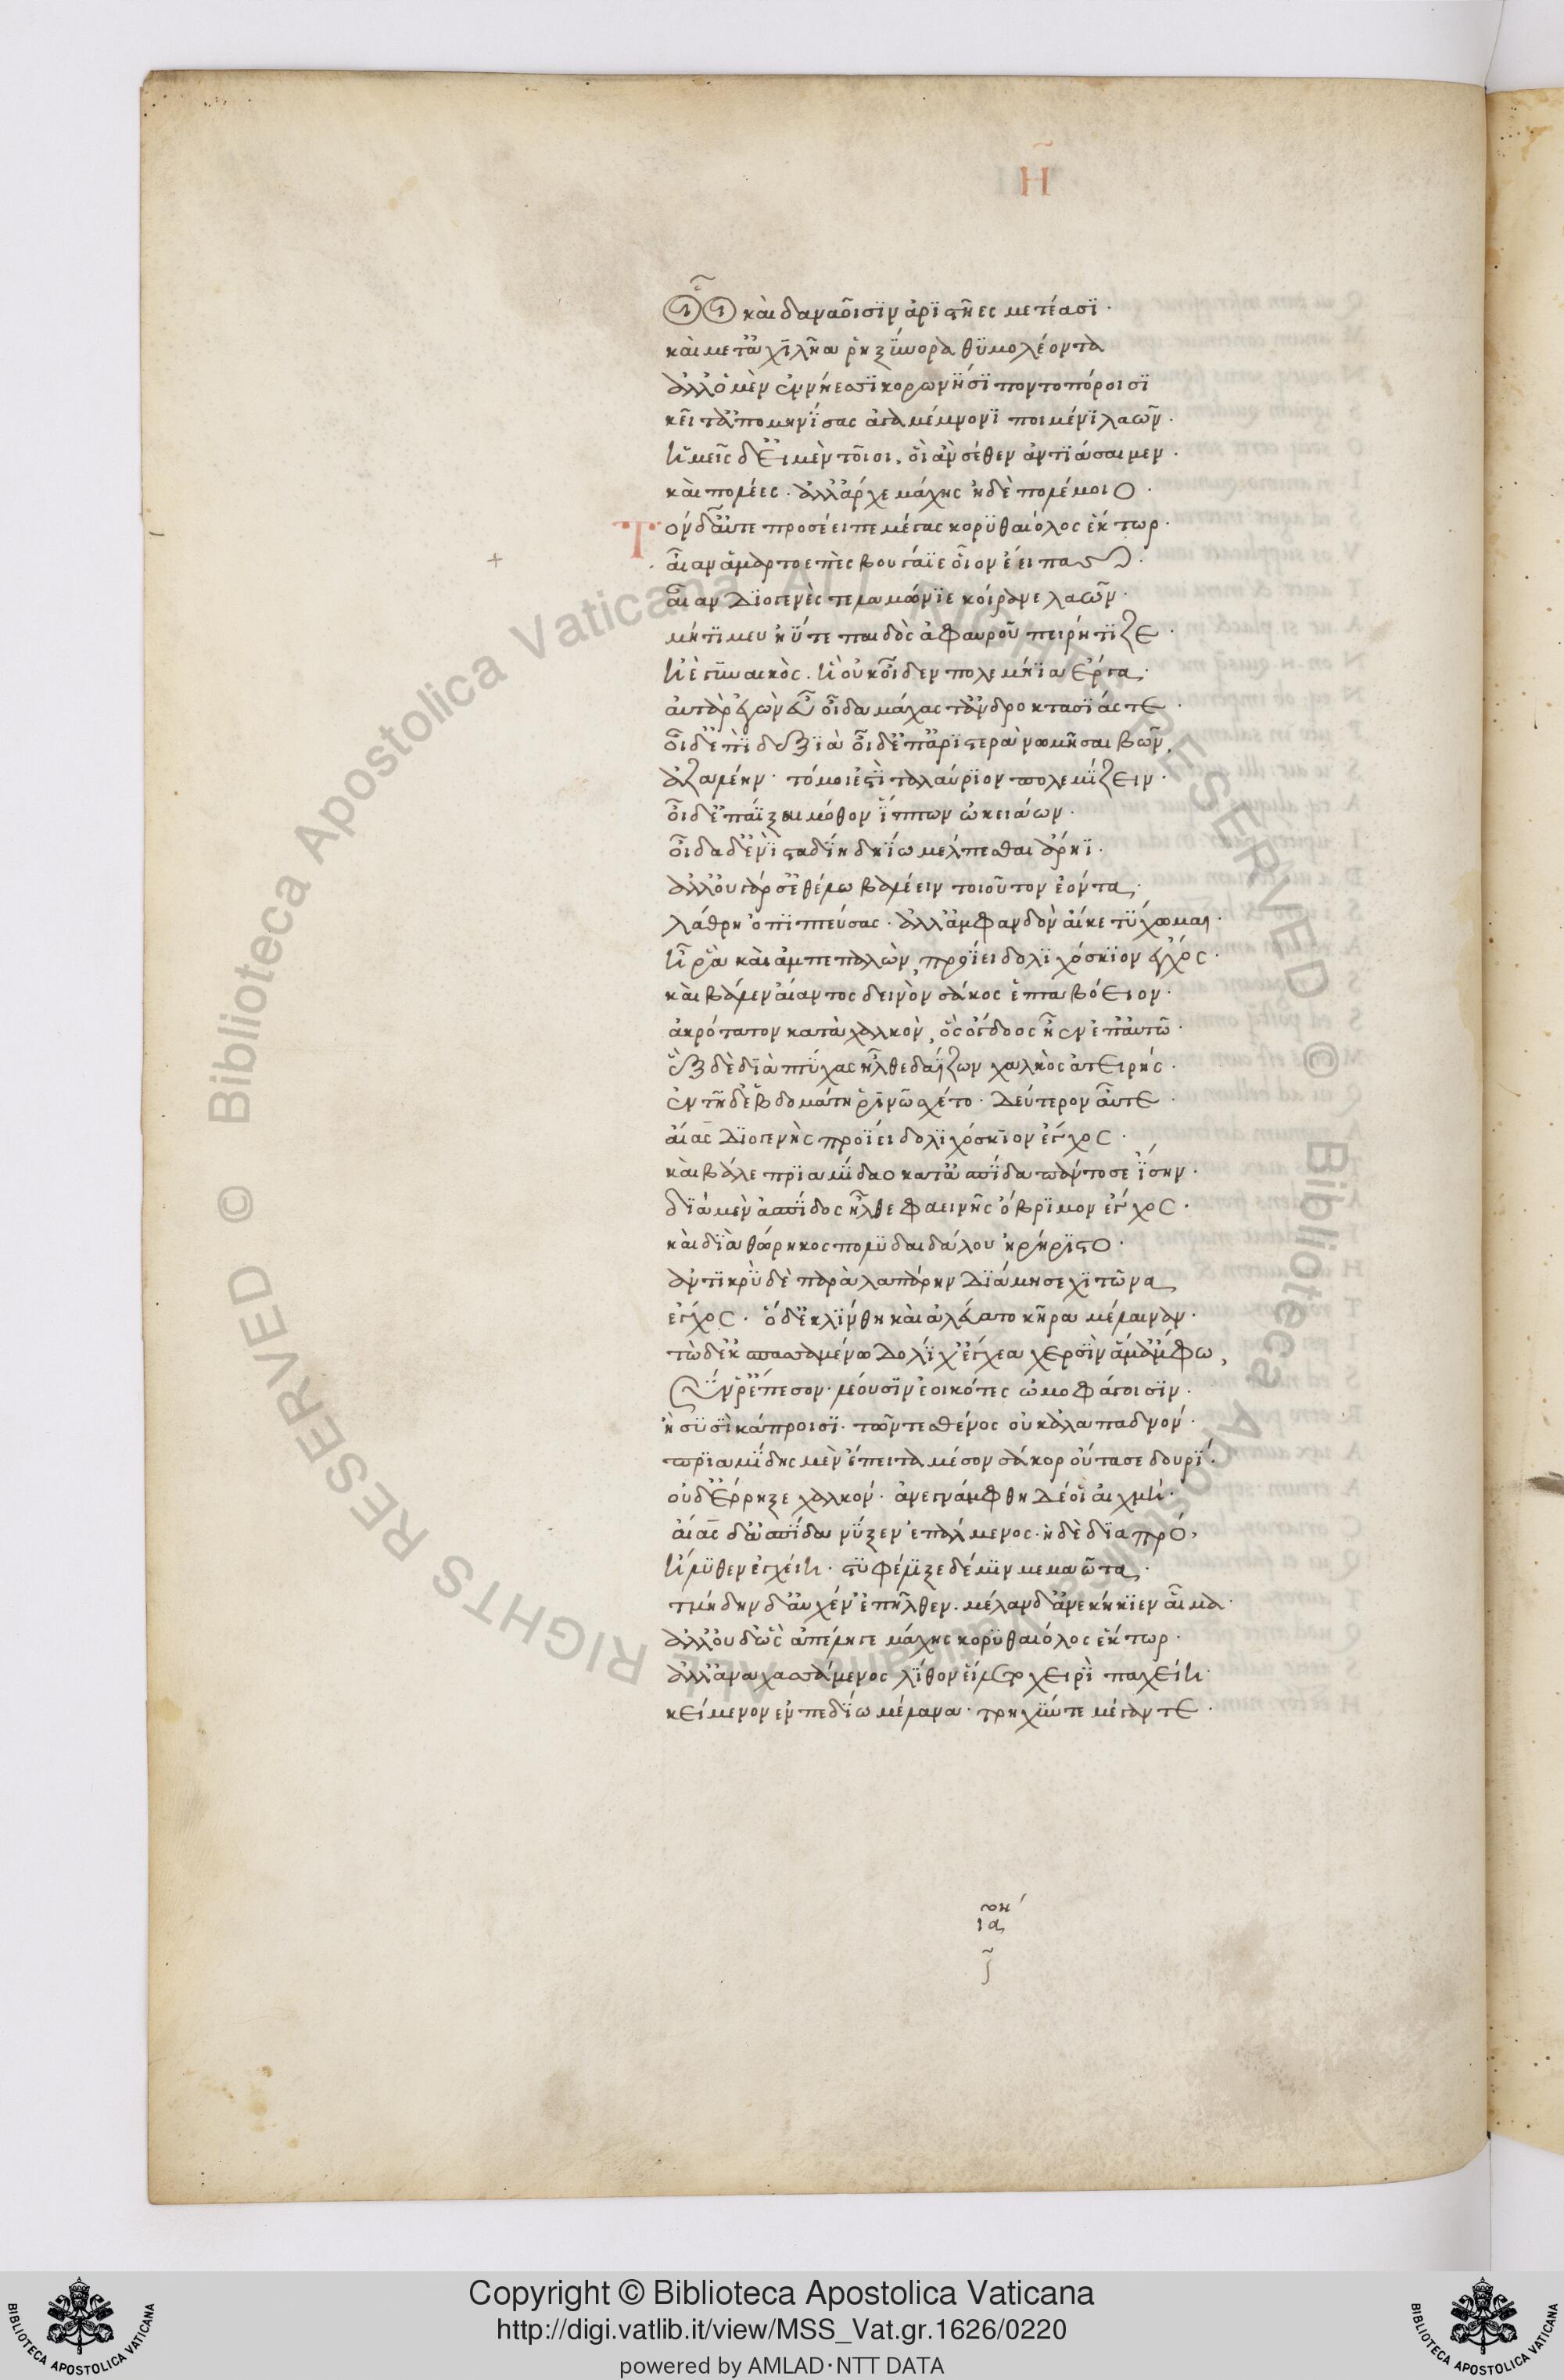 Η
οἷοι καὶ δαναοῖσϊν ἀρϊστῆες μετέασϊ·
καὶ μετ' ἀχϊλῆα ῥηξήνορα θϋμολέοντα
ἀλλ' ὁ μὲν ἐν νήεσσϊ κορωνΐσϊ ποντοπόροισϊ
κεῖτ' ἀπομηνΐσας ἀγαμέμνονϊ ποιμένϊ λαῶν·
ἡμεῖς δ' εἰμὲν τοῖοι, οἳ ἂν σέθεν ἀντϊάσαιμεν·
καὶ πολέες· ἀλλ' ἄρχε μάχης ἠδὲ πολέμοιο·
Τὸν δ' αὖτε προσέειπε μέγας κορϋθαιόλος ἕκτωρ·
αἶαν ἁμαρτοεπὲς βουγάϊε οἷον ἔειπας·
αἶαν Δϊογενὲς τελαμώνϊε κοίρανε λαῶν·
μήτϊ μευ ἠΰτε παιδὸς ἀφαυροῦ πειρήτϊζε·
ἠὲ γϋναικὸς· ἣ οὐκ οἶδεν πολεμήϊα ἔργα·
αὐτὰρ ἐγὼν εὖ οἶδα μάχας τ' ἀνδροκτασΐας τε·
οἶδ' ἐπὶ δεξϊὰ οἶδ' ἐπ' ἀρϊστερὰ νωμῆσαι βῶν,
ἀζαλέην· τό μοι ἐστὶ ταλαύρϊον πολεμΐζειν·
οἶδ' ἐπαΐξαι μόθον ἵππων ὠκειάων·
οἶδα δ' ἐνὶ σταδΐη δηΐω μέλπεσθαι ἄρηϊ·
ἀλλ' οὐ γάρ σ' ἐθέλω βαλέειν τοιοῦτον ἐόντα·
λάθρη ὀπϊπτεύσας· ἀλλ' ἀμφανδὸν αἴκε τΰχωμαι·
ἦ ῥα καὶ ἀμπεπαλὼν, προΐει δολϊχόσκϊον ἔγχος·
καὶ βάλεν αἴαντος δεινὸν σάκος ἑπταβόειον·
ἀκρότατον κατὰ χαλκὸν, ὃς ὄγδοος ἦεν ἐπ' αὐτῶ·
ἓξ δὲ δϊὰ πτΰχας ἦλθε δαΐζων χαλκὸς ἀτειρής·
ἐν τῆ δ' ἑβδομάτη ῥϊνῶ σχέτο· Δεύτερον αὖτε·
αἴας Δϊογενὴς προΐει δολϊχόσκϊον ἔγχος·
καὶ βάλε πρϊαμΐδαο κατ' ἀσπΐδα πάντοσε ἴσην·
δϊὰ μὲν ἀσπΐδος ἦλθε φαεινῆς ὄβρϊμον ἔγχος·
καὶ δϊὰ θώρηκος πολϋδαιδάλου ἠρήρϊστο·
ἀντϊκρὺ δὲ παρὰ λαπάρην Δϊάμησε χϊτῶνα
ἔγχος· ὁ δ' ἐκλΐνθη καὶ ἀλεύατο κῆρα μέλαιναν·
τὼ δ' ἐκσπασσαμένω Δολΐχ' ἔγχεα χερσὶν ἅμ' ἄμφω,
Σΰν ῥ' ἔπεσον· λέουσϊν ἐοικότες ὠμοφάγοισϊν·
ἢ σϋσὶ κάπροισϊ· τῶντε σθένος οὐκ ἀλαπαδνόν·
πρϊαμΐδης μὲν ἔπειτα μέσον σάκος οὔτασε δουρΐ·
οὐδ' ἔρρηξε χαλκόν· ἀνεγνάμφθη Δέ οἱ αἰχμή·
αἴας δ' ἀσπΐδα νΰξεν ἐπαλμενος· ἡ δὲ δϊαπρό,
ἤλϋθεν ἐγχείη· στϋφέλϊξε δέ μϊν μεμαῶτα·
τμήδην δ' αὐχέν' ἐπῆλθεν· μέλαν δ' ἀνεκήκϊεν αἷμα·
ἀλλ' οὐδ' ὣς ἀπέληγε μάχης κορϋθαιόλος ἕκτωρ·
ἀλλ' ἀναχασσάμενος λΐθον εἵλετο χειρὶ παχείη·
κείμενον ἐν πεδΐω μέλανα· τρηχΰν τε μέγαν τε·